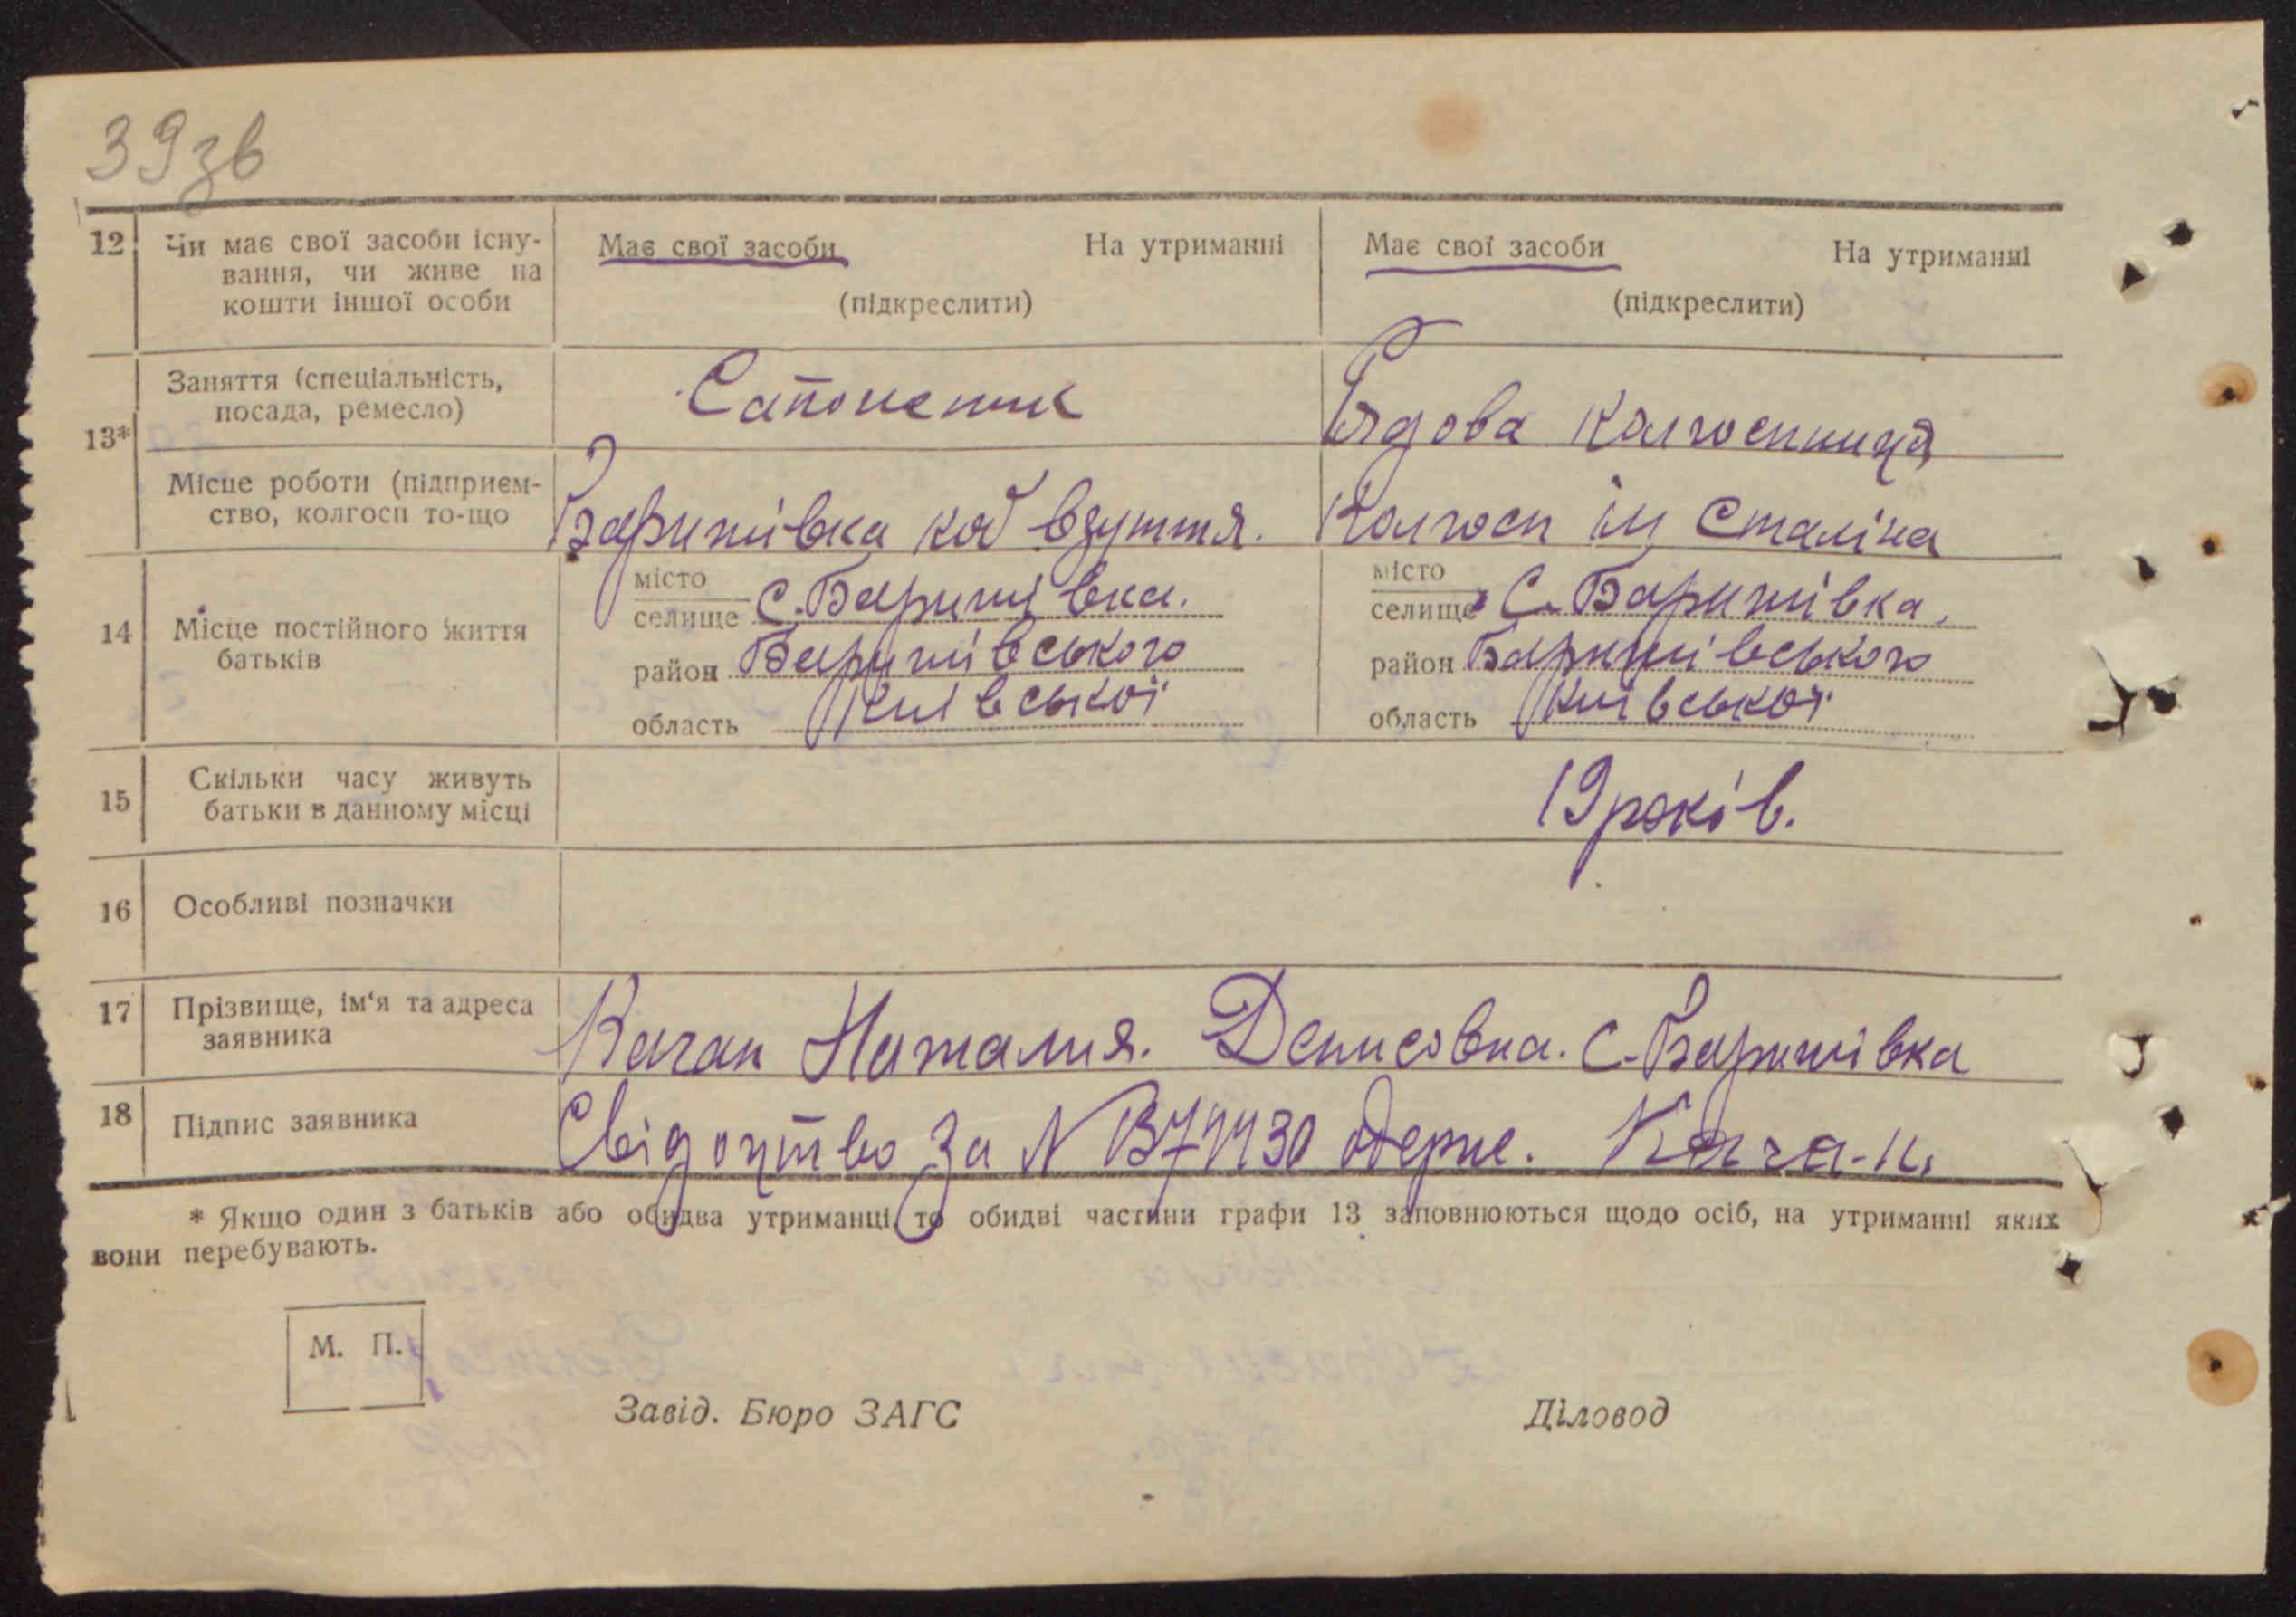 39зв
12 Чи має свої засоби існу- Має свої засоби На утриманні Має свої засоби На утриманні
вання, чи живе на
кошти іншої особи (підкреслити) (підкреслити)
Заняття (спеціальність, Рядова колгоспниця
посада, ремесло)
13*
Місце роботи (підприєм- Баришівка взуття. Колгосп ім Сталіна
ство, колгосп то-що
місто місто
селище с. Баришівка. селище с. Баришівка,
14 Місце постійного життя
батьків
район Баришівського район Баришівського
область Київської область Київської
15 Скільки часу живуть 19 років.
батьки в данному місці
16 Особливі позначки
17 Прізвище, ім'я та адреса Качан Наталия. Денисовна. с. Баришівка
заявника
18 Підпис заявника Свідоцтво за N одерже. Кача-н.
* Якщо один з батьків або обидва утриманці, то обидві частини графи 13 заповнюються щодо осіб, на утриманні яких
вони перебувають.
М. П.
Завід. Бюро ЗАГС Діловод